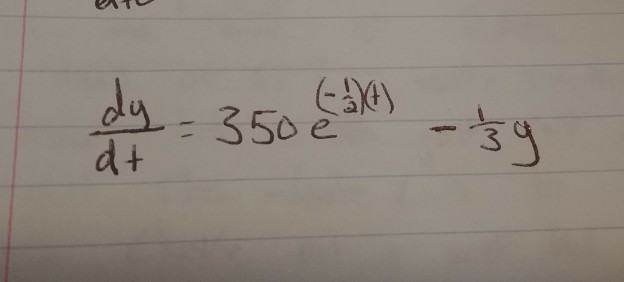 dy/dt = 350 e^(-1/2)(t) - 1/3 y